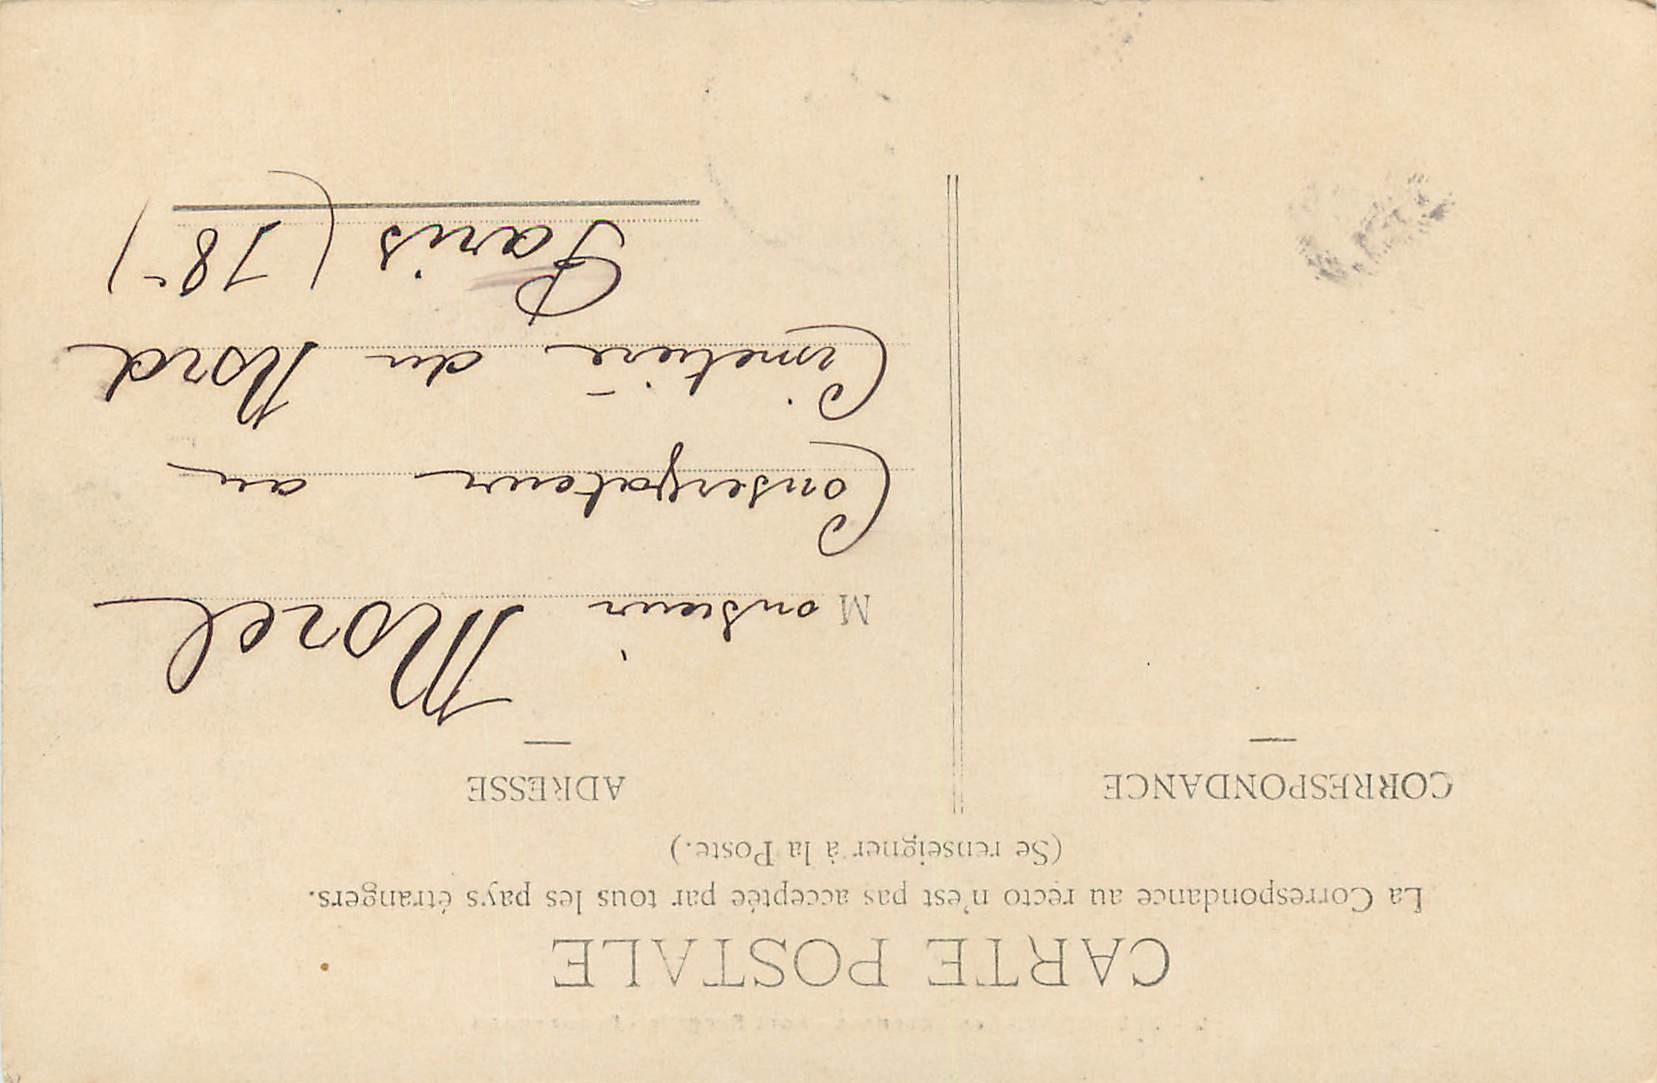 CARTE POSTALE
La Correspondance au recto n'est pas acceptée par tous les pays étrangers.
(Se renseigner à la Poste.)
CORRESPONDANCE
ADRESSE
Monsieur Morel
Conservateur au
Cimetière du Nord
Paris (18e)